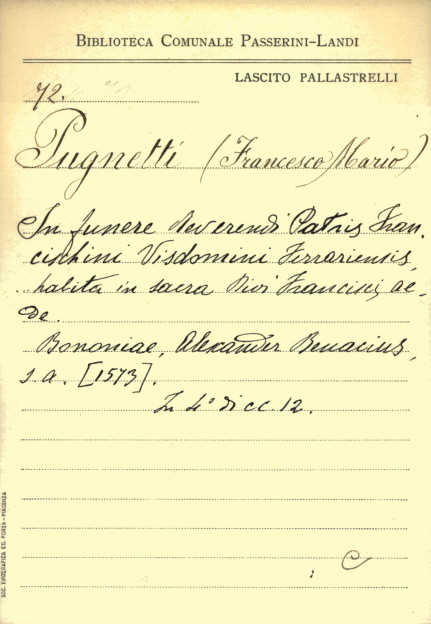 BIBLIOTECA COMUNALE PASSERINI-LANDI
LASCITO PALLASTRELLI
72.
Pugnetti (Francesco Mario)
In funere Reverendi Patris Fran.
cischini Visdomini Ferrariensis,
habita in sacra Divi Francisci ae-
de.
Bononiae, Alexander Benacius,
s.a. [1573].
In 4° di cc. 12.
C
SOC. TIPOGRAFICA ED. PORTA - PIACENZA